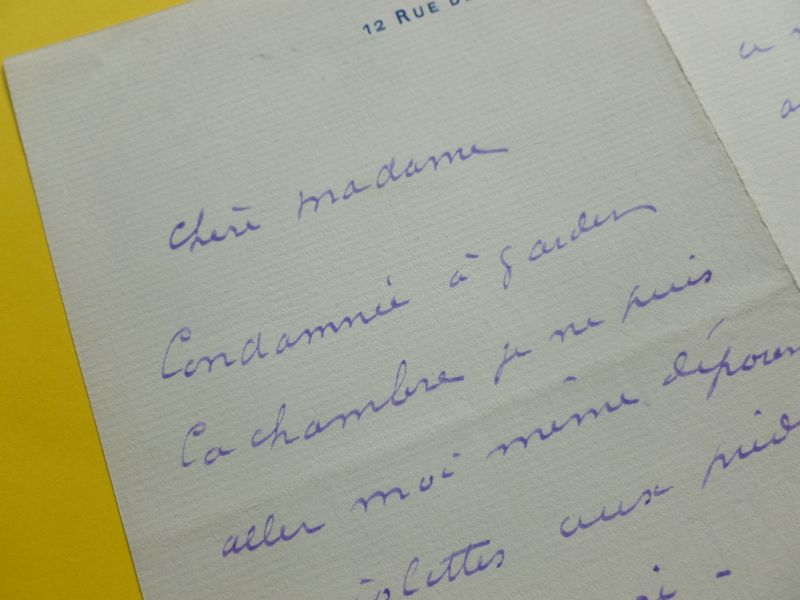 12 RUE D
Chère madame
Condamnée à garder
la chambre je ne puis
aller moi même déposer
violettes aux pied